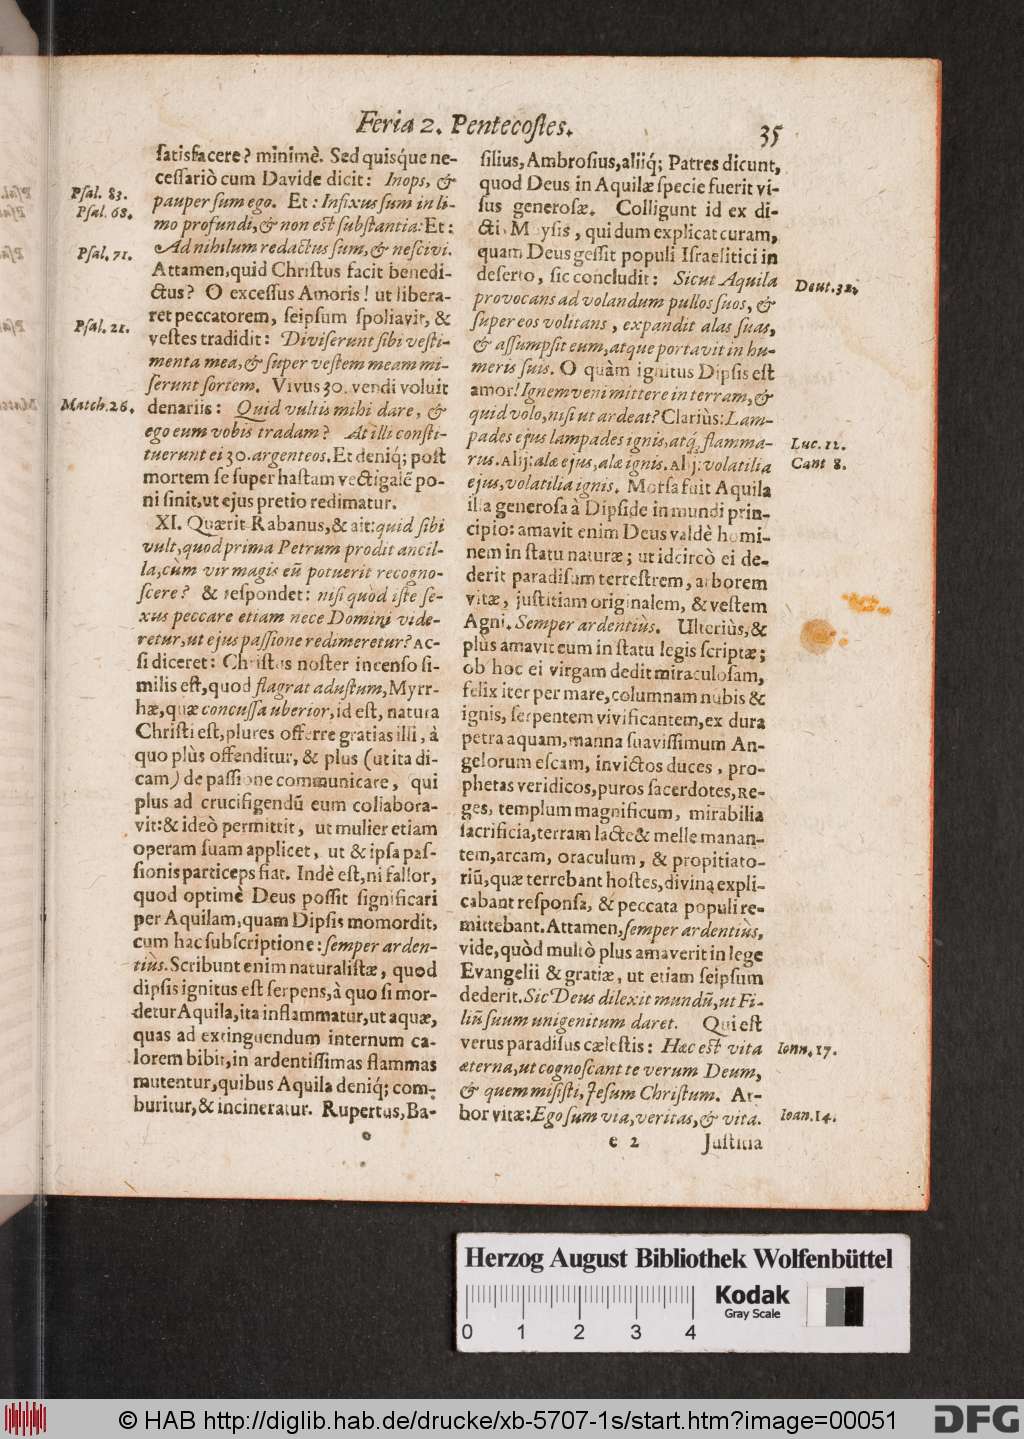 Feria 2. Pentecoſtes.
35
ſatisfacere? minimè. Sed quisq́ue ne-
ceſſariò cum Davide dicit: Inops, &
pauper ſum ego. Et: Infixus ſum in li-
mo profundi, & non eſt ſubſtantia: Et:
Ad nihilum redactus ſum, & neſcivi.
Attamen, quid Chriſtus facit benedi-
ctus? O exceſſus Amoris! ut libera-
ret peccatorem, ſeipſum ſpoliavit, &
veſtes tradidit: Diviſerunt ſibi veſti-
menta mea, & ſuper veſtem meam mi-
ſerunt ſortem. Vivus 30. vendi voluit
denariis: Quid vultis mihi dare, &
ego eum vobis tradam? At illi conſti-
tuerunt ei 30. argenteos. Et deniq́; poſt
mortem ſe ſuper haſtam vectigalē po-
ni ſinit, ut ejus pretio redimatur.
XI. Quærit Rabanus, & ait: quid ſibi
vult, quod prima Petrum prodit ancil-
la, cùm vir magis eū potuerit recogno-
ſcere? & reſpondet: niſi quòd iſte ſe-
xus peccare etiam nece Domini vide-
retur, ut ejus paſſione redimeretur? Ac-
ſi diceret: Chriſtus noſter incenſo ſi-
milis eſt, quod flagrat aduſtum, Myrr-
hæ, quæ concuſſa uberior, id eſt, natura
Chriſti eſt, plures offerre gratias illi, à
quo plùs offenditur, & plus (ut ita di-
cam) de paſſione communicare, qui
plus ad crucifigendū eum collabora-
vit: & ideò permittit, ut mulier etiam
operam ſuam applicet, ut & ipſa paſ-
ſionis particeps fiat. Indè eſt, ni fallor,
quod optimè Deus poſſit ſignificari
per Aquilam, quam Dipſis momordit,
cum hac ſubſcriptione: ſemper arden-
tiùs. Scribunt enim naturaliſtæ, quod
dipſis ignitus eſt ſerpens, à quo ſi mor-
detur Aquila, ita inflammatur, ut aquæ,
quas ad extinguendum internum ca-
lorem bibit, in ardentiſſimas flammas
mutentur, quibus Aquila deniq́; com-
buritur, & incineratur. Rupertus, Ba-
ſilius, Ambroſius, aliiq́; Patres dicunt,
quod Deus in Aquilæ ſpecie fuerit vi-
ſus generoſæ. Colligunt id ex di-
ctis Moyſis, qui dum explicat curam,
quam Deus geſſit populi Iſraelitici in
deſerto, ſic concludit: Sicut Aquila
provocans ad volandum pullos ſuos, &
ſuper eos volitans, expandit alas ſuas,
& aſſumpſit eum, atque portavit in hu-
meris ſuis. O quàm ignitus Dipſis eſt
amor! Ignem veni mittere in terram, &
quid volo, niſi ut ardeat? Clariùs: Lam-
pades ejus lampades ignis, atq́; flamma-
rum. Alij: alæ ejus, alæ ignis. Alij: volatilia
ejus, volatilia ignis. Morſa fuit Aquila
illa generoſa à Dipſide in mundi prin-
cipio: amavit enim Deus valdè homi-
nem in ſtatu naturæ; ut idcircò ei de-
derit paradiſum terreſtrem, arborem
vitæ, juſtitiam originalem, & veſtem
Agni. Semper ardentiùs. Ulteriùs, &
plùs amavit eum in ſtatu legis ſcriptæ;
ob hoc ei virgam dedit miraculoſam,
felix iter per mare, columnam nubis &
ignis, ſerpentem vivificantem, ex dura
petra aquam, manna ſuaviſſimum An-
gelorum eſcam, invictos duces, pro-
phetas veridicos, puros ſacerdotes, Re-
ges, templum magnificum, mirabilia
ſacrificia, terram lacte & melle manan-
tem, arcam, oraculum, & propitiato-
riū, quæ terrebant hoſtes, divina expli-
cabant reſponſa, & peccata populi re-
mittebant. Attamen, ſemper ardentiùs,
vide, quòd multò plus amaverit in lege
Evangelii & gratiæ, ut etiam ſeipſum
dederit. Sic Deus dilexit mundū, ut Fi-
liū ſuum unigenitum daret. Qui eſt
verus paradiſus cæleſtis: Hæc eſt vita
æterna, ut cognoſcant te verum Deum,
& quem miſiſti, Jeſum Chriſtum. Ar-
bor vitæ: Ego ſum via, veritas, & vita.
e 2
Juſtitia
Pſal. 83.
Pſal. 68.
Pſal. 71.
Pſal. 21.
Matth. 26.
Deut. 32.
Luc. 12.
Cant 8.
Ioan. 17.
Ioan. 14.
Herzog August Bibliothek Wolfenbüttel
Kodak
Gray Scale
0 1 2 3 4
© HAB http://diglib.hab.de/drucke/xb-5707-1s/start.htm?image=00051
DFG